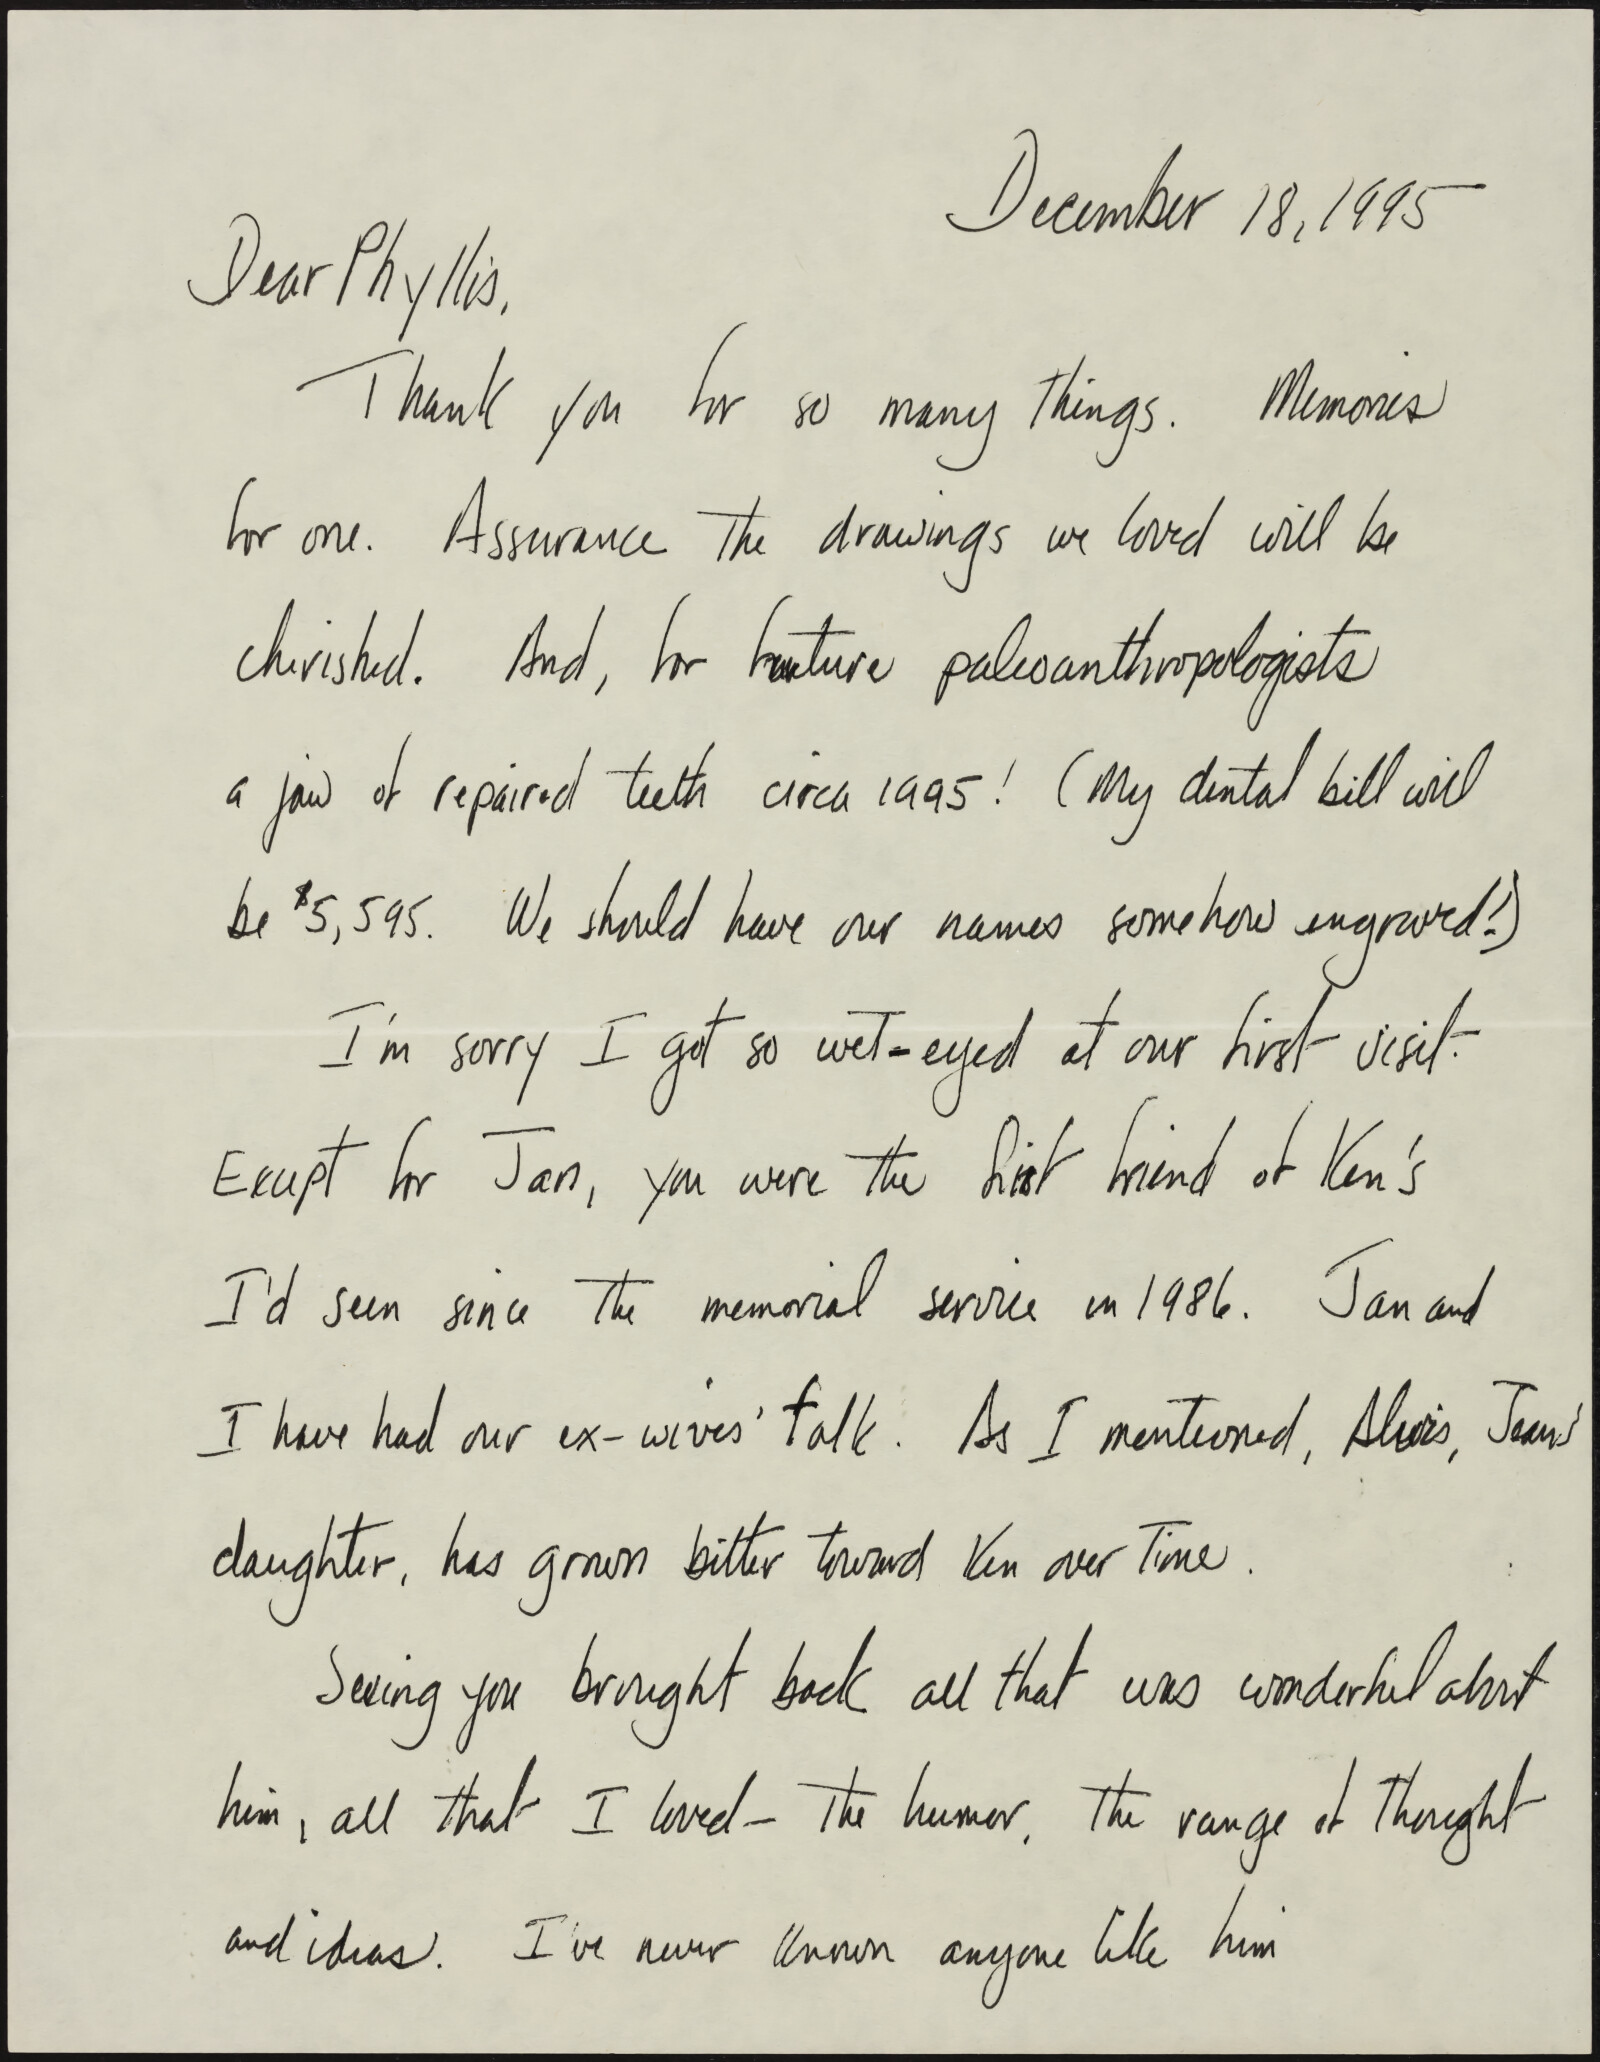 December 18, 1995
Dear Phyllis,
Thank you for so many things. Memories
for one. Assurance the drawings we loved will be
cherished. And, for future paleoanthropologists
a jaw of repaired teeth circa 1995! (My dental bill will
be $5,595. We should have our names somehow engraved!)
I'm sorry I got so wet-eyed at our first visit.
Except for Jan, you were the first friend of Ken's
I'd seen since the memorial service in 1986. Jan and
I have had our ex-wives' talk. As I mentioned, Alexis, Jean's
daughter, has grown bitter toward Ken over time.
Seeing you brought back all that was wonderful about
him, all that I loved - the humor, the range of thought
and ideas. I've never known anyone like him